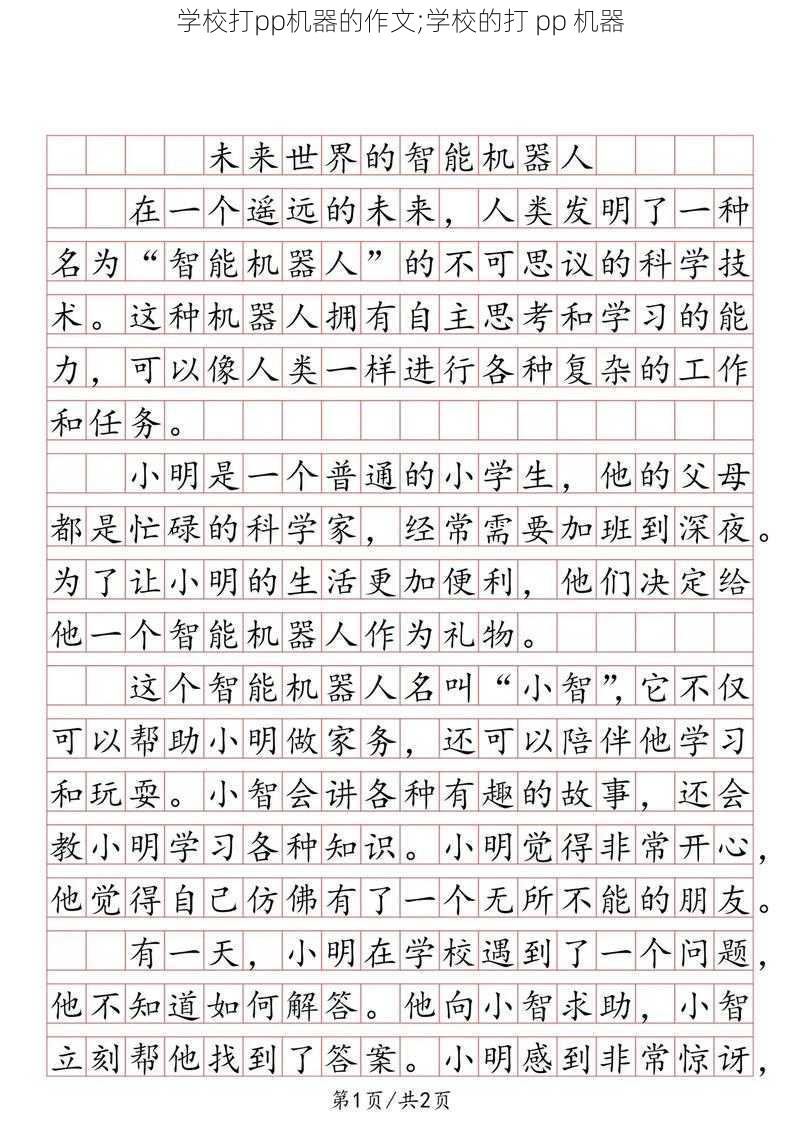 学校打pp机器的作文;学校的打 pp 机器
未来世界的智能机器人
在一个遥远的未来，人类发明了一种
名为“智能机器人”的不可思议的科学技
术。这种机器人拥有自主思考和学习的能
力，可以像人类一样进行各种复杂的工作
和任务。
小明是一个普通的小学生，他的父母
都是忙碌的科学家，经常需要加班到深夜。
为了让小明的生活更加便利，他们决定给
他一个智能机器人作为礼物。
这个智能机器人名叫“小智”，它不仅
可以帮助小明做家务，还可以陪伴他学习
和玩耍。小智会讲各种有趣的故事，还会
教小明学习各种知识。小明觉得非常开心，
他觉得自己仿佛有了一个无所不能的朋友。
有一天，小明在学校遇到了一个问题，
他不知道如何解答。他向小智求助，小智
立刻帮他找到了答案。小明感到非常惊讶，
第1页/共2页